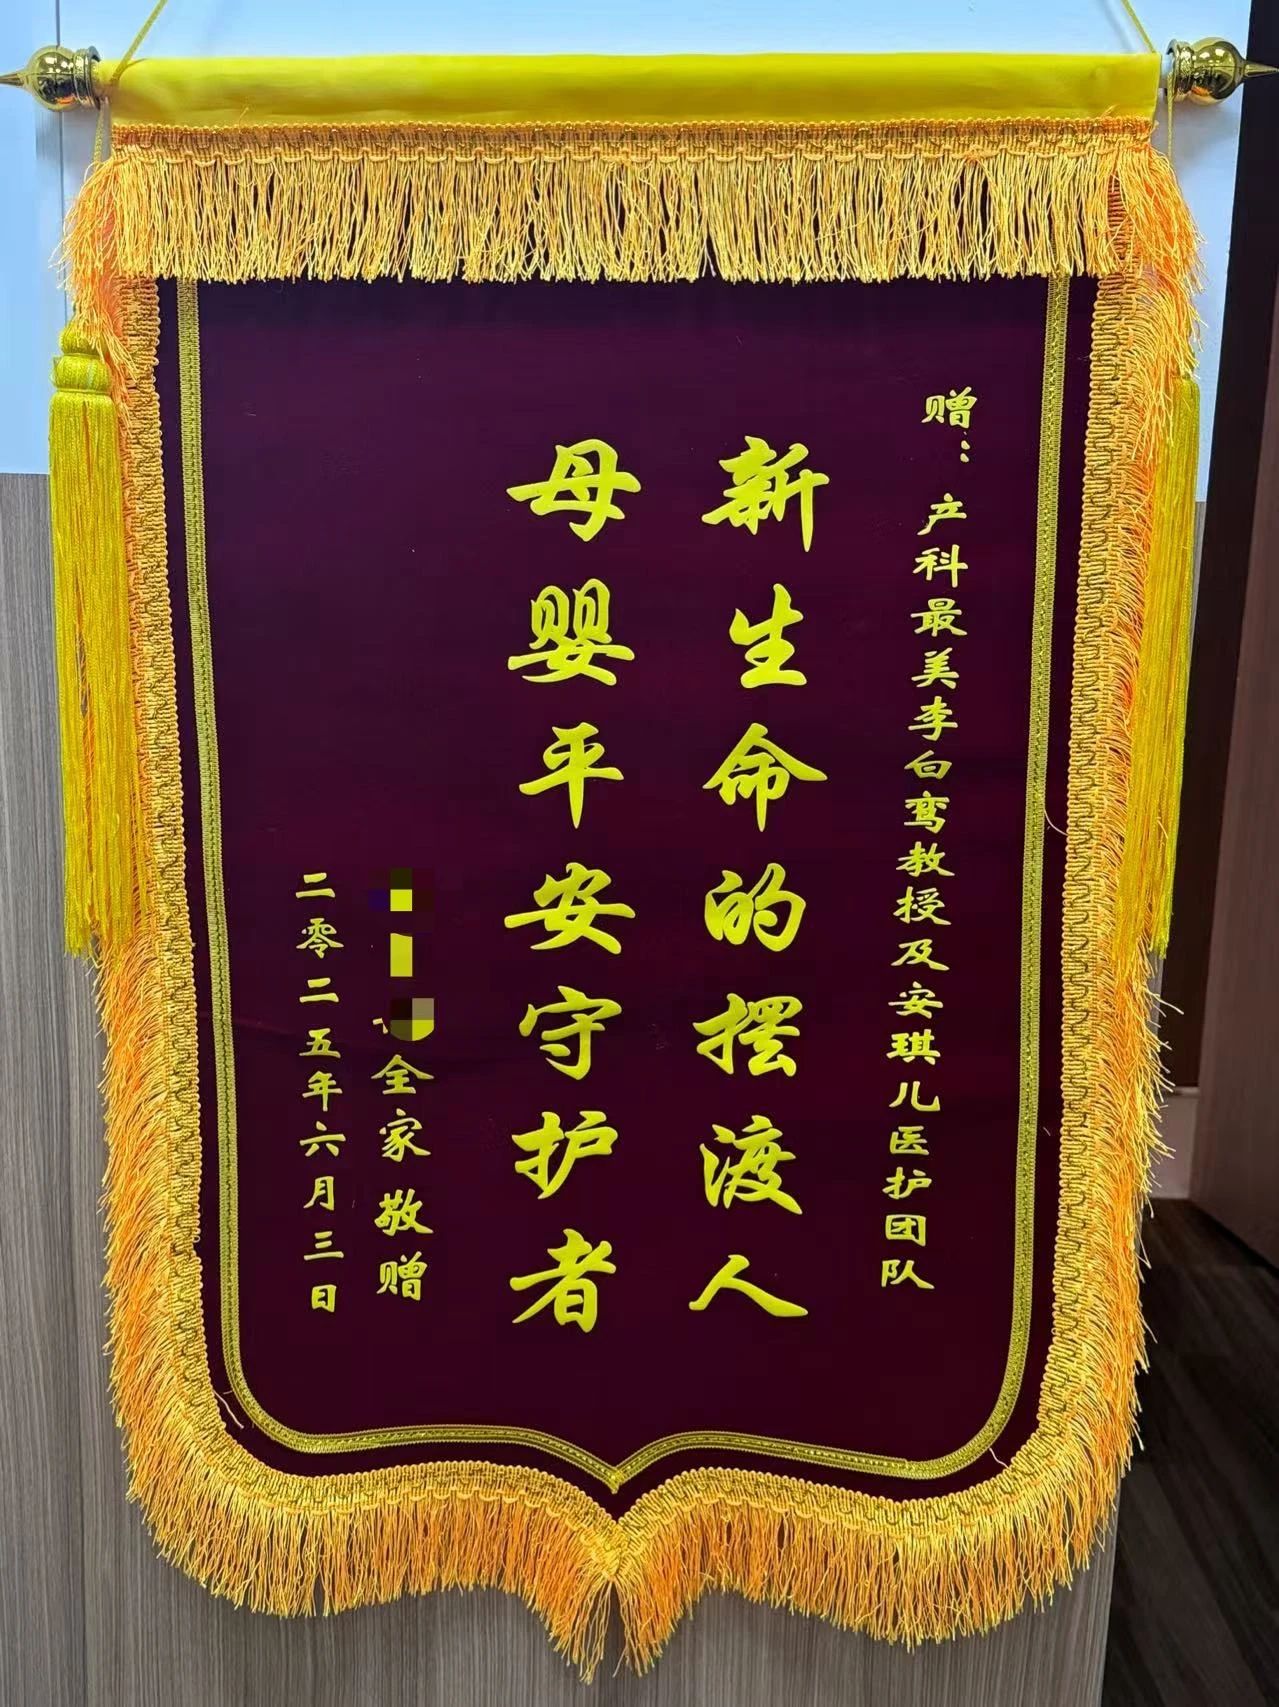 赠：产科最美李白鸾教授及安琪儿医护团队
新生命的摆渡人
母婴平安守护者
全家 敬赠
二零二五年六月三日